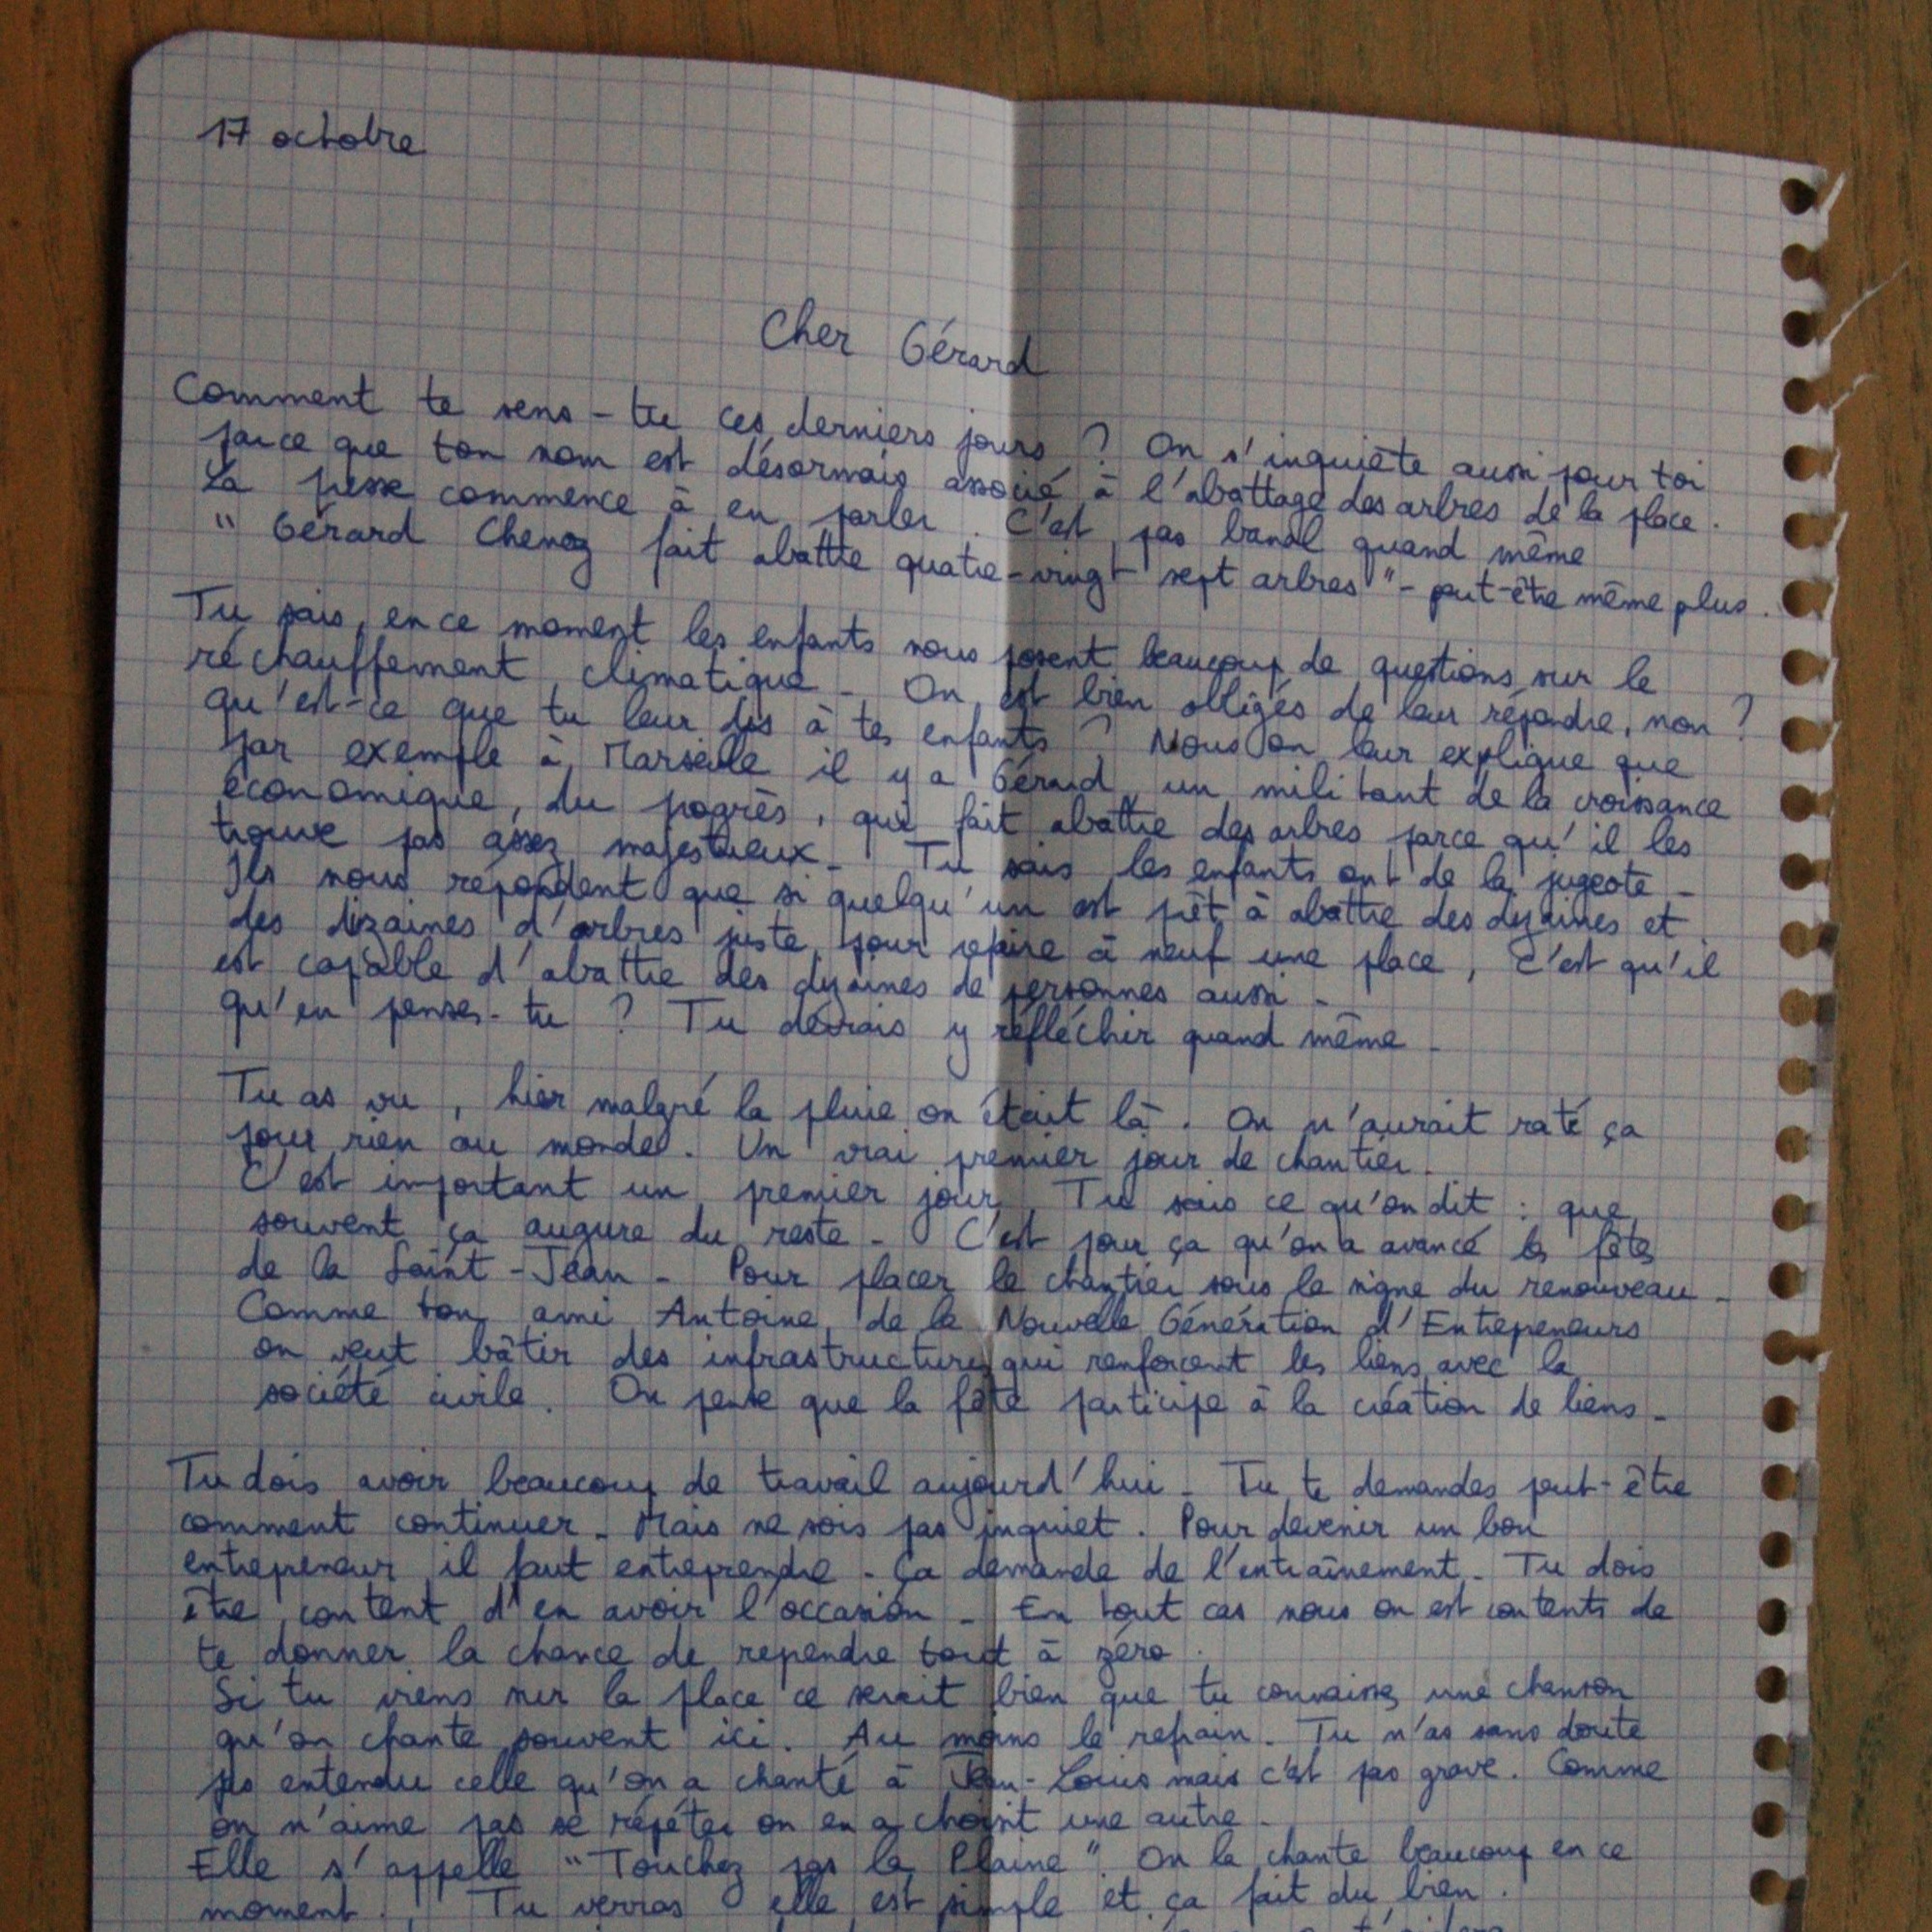 17 octobre
Cher Gérard
Comment te sens-tu ces derniers jours ? On s'inquiète aussi pour toi
parce que ton nom est désormais associé à l'abattage des arbres de la place.
La presse commence à en parler. C'est pas banal quand même
" Gérard Chenoz fait abattre quatre-vingt sept arbres " - peut-être même plus.
Tu sais, en ce moment les enfants nous posent beaucoup de questions sur le
réchauffement climatique - On est bien obligés de leur répondre, non ?
qu'est-ce que tu leur dis à tes enfants ? Nous on leur explique que
par exemple à Marseille il y a Gérard, un militant de la croissance
économique, du progrès, qui fait abattre des arbres parce qu'il les
trouve pas assez majestueux - Tu sais les enfants ont de la jugeote -
Ils nous répondent que si quelqu'un est prêt à abattre des dizaines et
des dizaines d'arbres juste pour refaire à neuf une place, c'est qu'il
est capable d'abattre des dizaines de personnes aussi -
qu'en penses-tu ? Tu devrais y réfléchir quand même -
Tu as vu, hier malgré la pluie on était là. On n'aurait raté ça
pour rien au monde. Un vrai premier jour de chantier.
C'est important un premier jour. Tu sais ce qu'on dit : que
souvent ça augure du reste - C'est pour ça qu'on a avancé les fêtes
de la Saint-Jean - Pour placer le chantier sous le signe du renouveau -
Comme ton ami Antoine, de la Nouvelle Génération d'Entrepreneurs
on veut bâtir des infrastructures qui renforcent les liens avec la
société civile. On pense que la fête participe à la création de liens -
Tu dois avoir beaucoup de travail aujourd'hui - Tu te demandes peut-être
comment continuer - Mais ne sois pas inquiet. Pour devenir un bon
entrepreneur il faut entreprendre - Ça demande de l'entraînement - Tu dois
être content d'en avoir l'occasion - En tout cas nous on est contents de
te donner la chance de reprendre tout à zéro.
Si tu viens sur la place ce serait bien que tu connaisses une chanson
qu'on chante souvent ici. Au moins le refrain - Tu n'as sans doute
pas entendu celle qu'on a chanté à Jean-Louis mais c'est pas grave. Comme
on n'aime pas se répéter on en a choisit une autre -
Elle s'appelle " Touchez pas la Plaine ". On la chante beaucoup en ce
moment. Tu verras elle est simple et ça fait du bien.